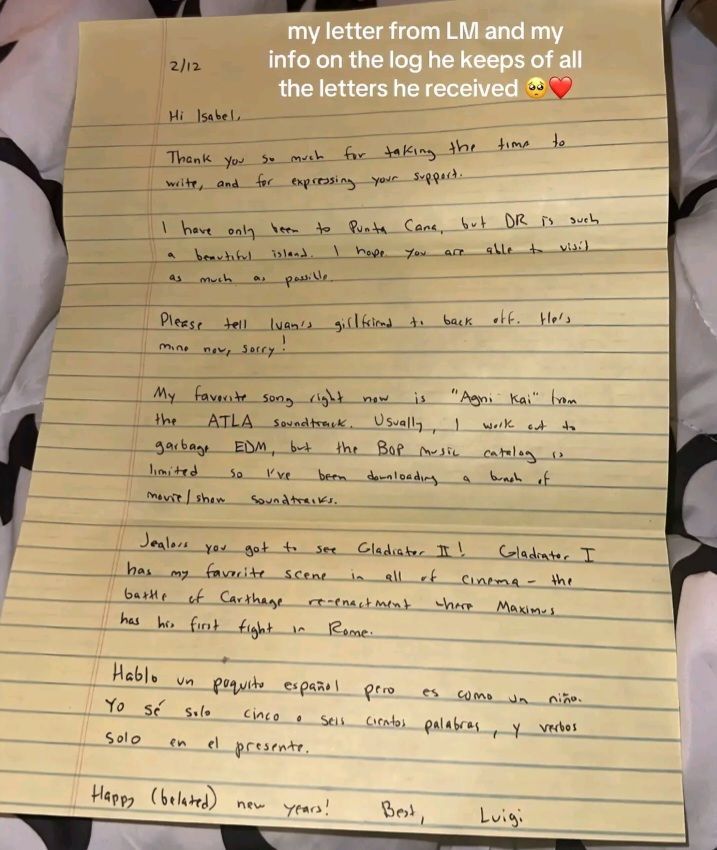 my letter from LM and my
info on the log he keeps of all
the letters he received 🥺❤️
2/12
Hi Isabel,
Thank you so much for taking the time to
write, and for expressing your support.
I have only been to Punta Cana, but DR is such
a beautiful island. I hope you are able to visit
as much as possible.
Please tell Ivan's girlfriend to back off. He's
mine now, sorry!
My favorite song right now is "Agni Kai" from
the ATLA soundtrack. Usually, I work out to
garbage EDM, but the BOP music catalog is
limited so I've been downloading a bunch of
movie/show soundtracks.
Jealous you got to see Gladiator II! Gladiator I
has my favorite scene in all of cinema - the
battle of Carthage re-enactment where Maximus
has his first fight in Rome.
Hablo un poquito español pero es como un niño.
Yo sé solo cinco o seis cientos palabras, y verbos
solo en el presente.
Happy (belated) new years! Best, Luigi